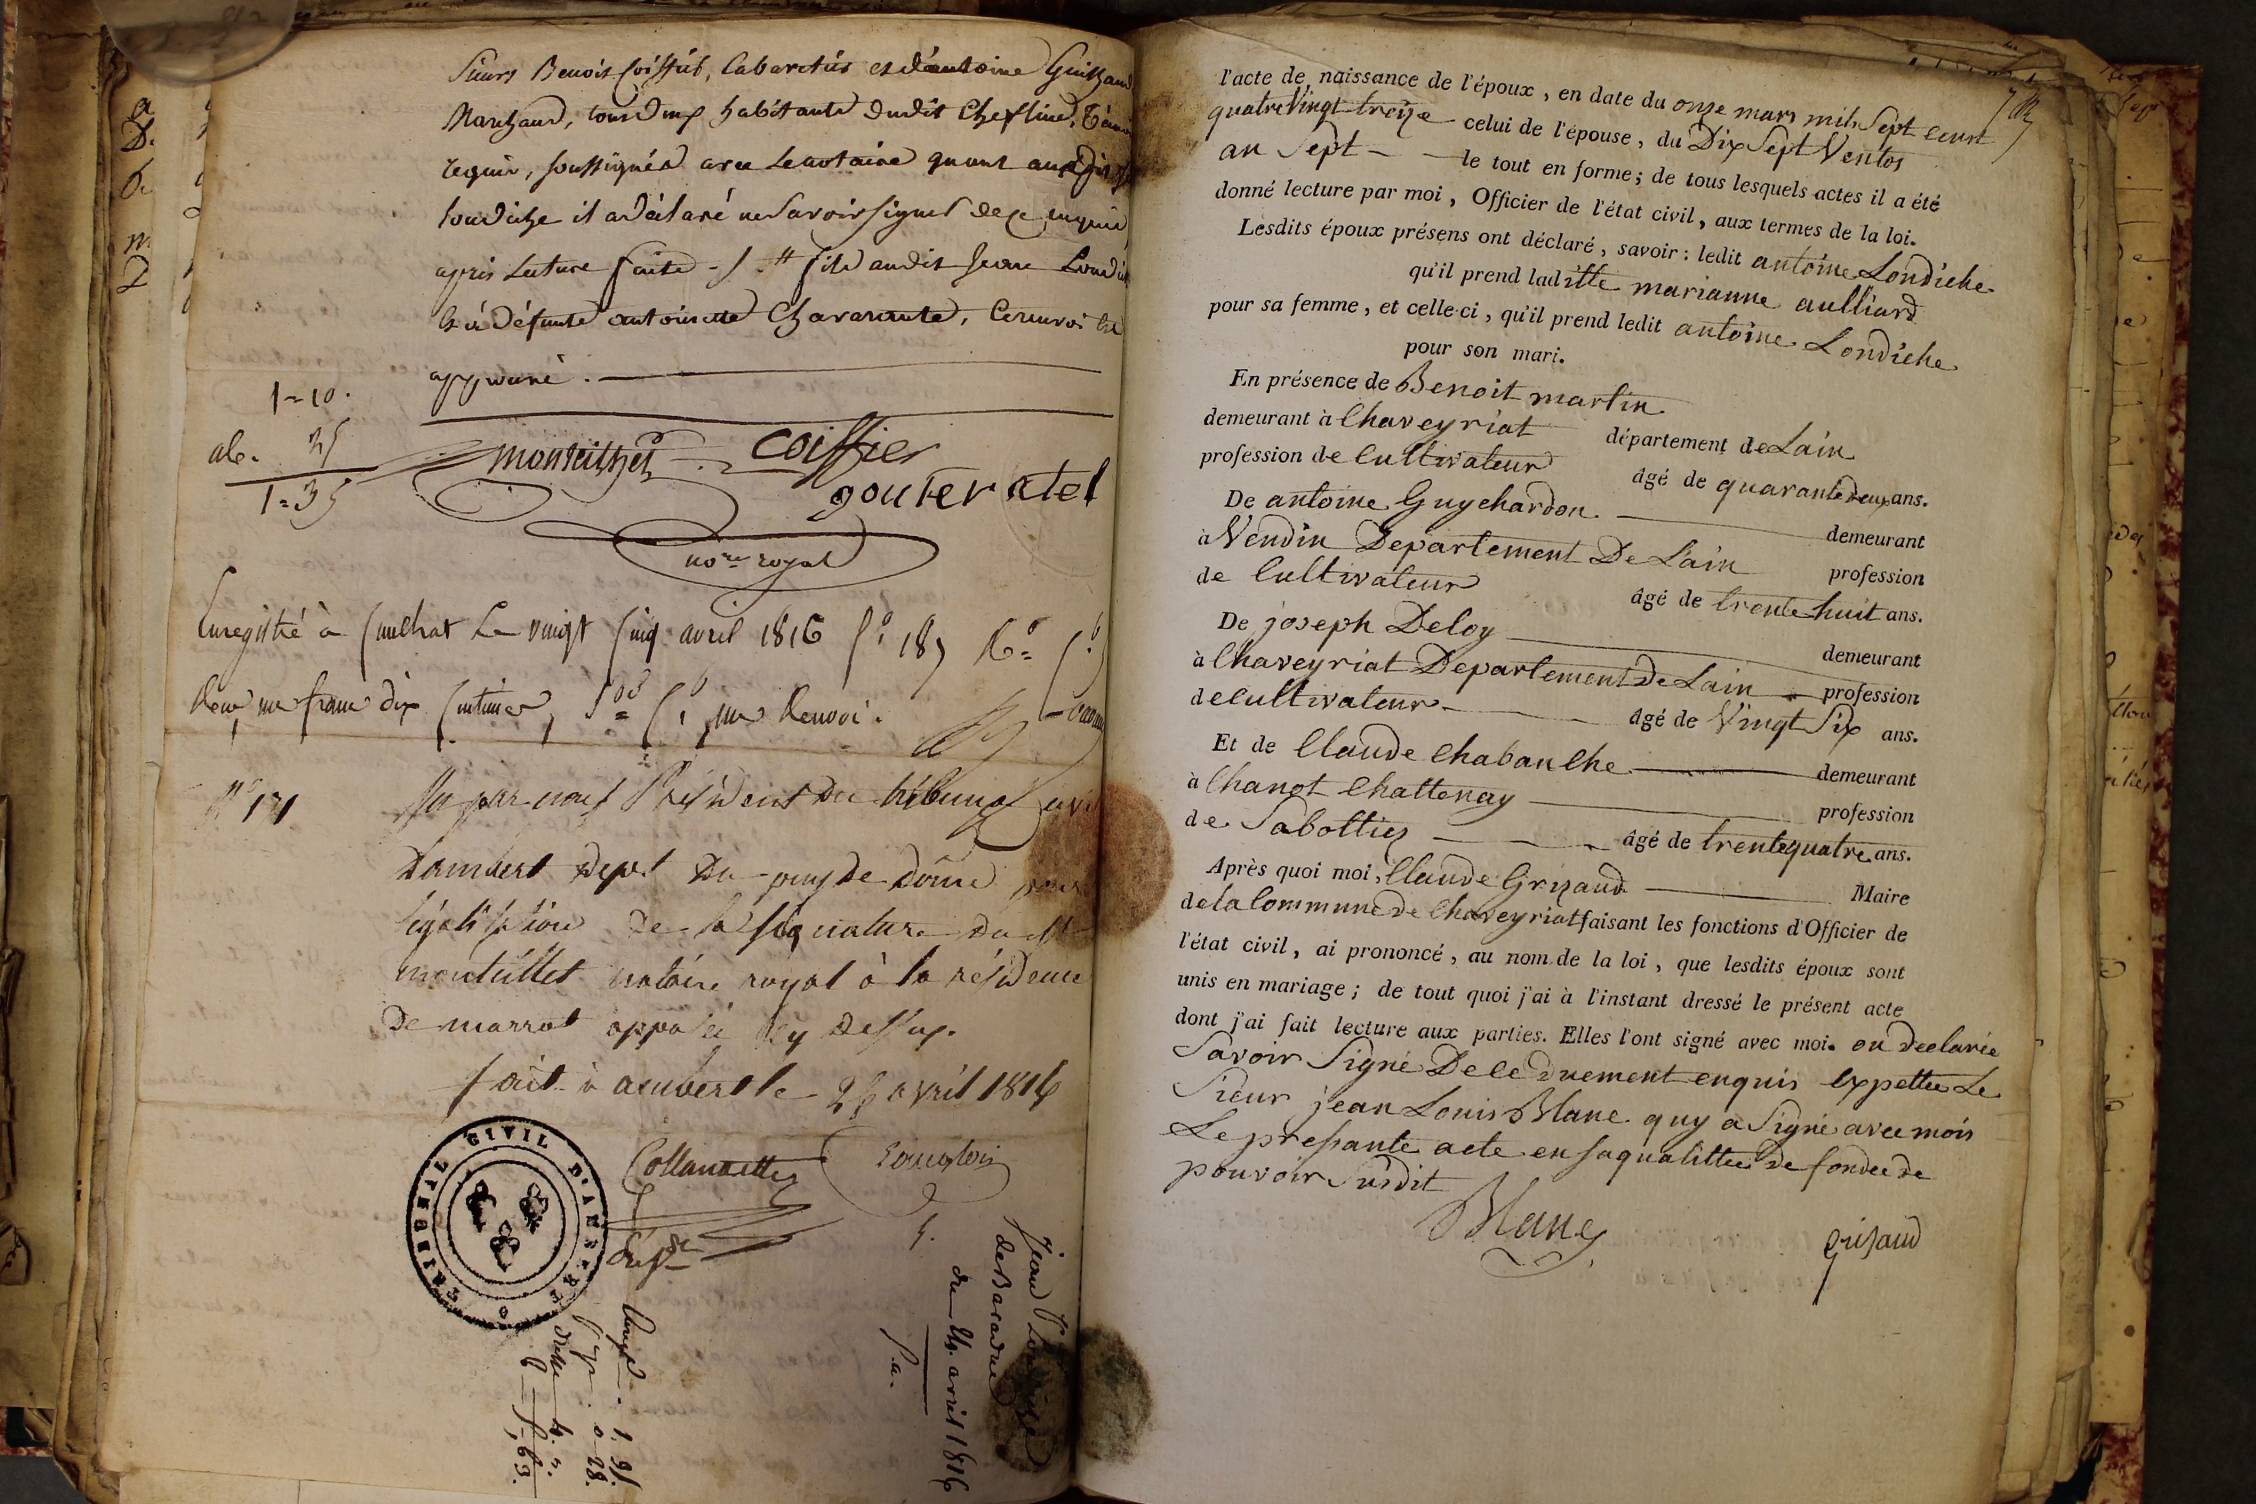 Sieurs Benoit Coiffier, Cabaretier et d'antoine
Marchand, tous deux habitants dudit Cheflieu, Témoins
requis, soussignés avec le notaire quant audit jean
Londiche il a déclaré ne savoir signer de ce enquis
après Lecture faite - fils audit Jean Londiche
& à défunte antoinette Chavarante, Le renvoi est
approuvé.
1=10.
alc. 35
1=35
monteithet Coiffier
gouteratel
no.re royal
Enregistré à Cunlhat Le vingt Cinq avril 1816 f.o 187 R.o
un franc dix Centimes, un Renvoi.
N.o 171
Vu par nous Président du tribunal civil
d'ambert dep.t du puy de dôme pour
légalisation de la signature du s.r
monteillet notaire royal à la résidence
de marsat apposée cy dessus.
fait à ambert le 26 avril 1816
Collangettes
TRIBUNAL CIVIL D'AMBERT
1. 35.
0 28.
1, 63.
Jean Londiche
de Baradue
du 24. avril 1816
l'acte de naissance de l'époux, en date du onze mars mils Sept Cent
quatre Vingt treize celui de l'épouse, du Dix Sept Ventos
an Sept - le tout en forme; de tous lesquels actes il a été
donné lecture par moi, Officier de l'état civil, aux termes de la loi.
Lesdits époux présens ont déclaré, savoir: ledit antoine Londiche
qu'il prend laditte marianne aulliard
pour sa femme, et celle-ci, qu'il prend ledit antoine Londiche
pour son mari.
En présence de Benoit martin
demeurant à Chaveyriat département de Lain
profession de Cultivateur âgé de quarante deux ans.
De antoine Guychardon demeurant
à Vendin Departement De Lain profession
de Cultivateur âgé de trente huit ans.
De joseph Deloy demeurant
à Chaveyriat Departement De Lain profession
de Cultivateur âgé de Vingt Six ans.
Et de Claude Chabanche demeurant
à Chanot Chattenay profession
de Sabottier âgé de trente quatre ans.
Après quoi moi, Claude Grizaud Maire
de la Commune de Chaveyriat faisant les fonctions d'Officier de
l'état civil, ai prononcé, au nom de la loi, que lesdits époux sont
unis en mariage; de tout quoi j'ai à l'instant dressé le présent acte
dont j'ai fait lecture aux parties. Elles l'ont signé avec moi. ou declarée
Savoir Signé De ce duement enquis Expettee Le
Sieur jean Louis Blanc quy a Signé avec mois
Le presante acte en sa qualittee de fondee de
pouvoir Susdit
Blanc
Grisaud